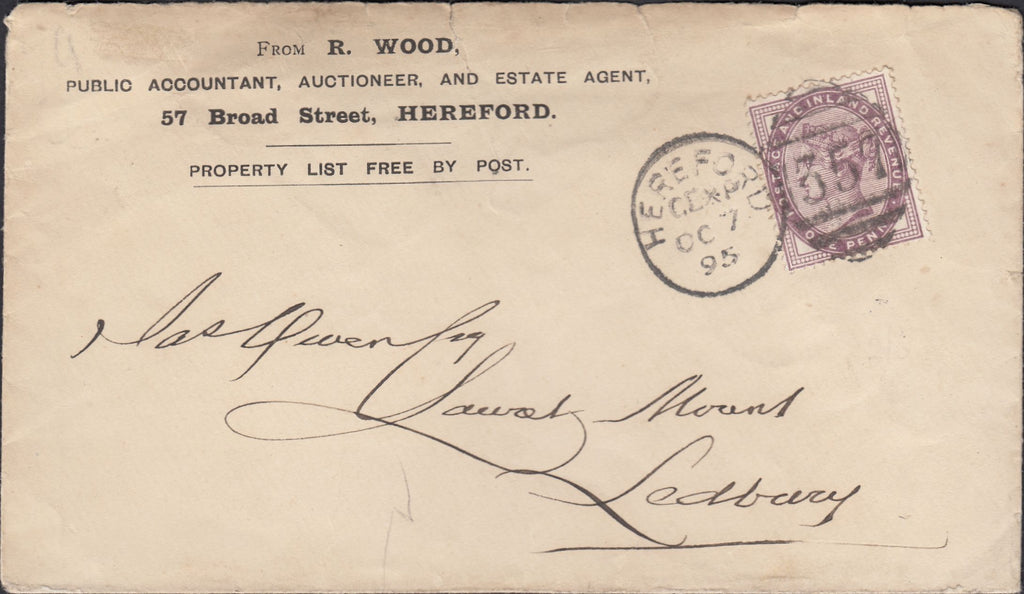 From R. WOOD,
PUBLIC ACCOUNTANT, AUCTIONEER, AND ESTATE AGENT,
57 Broad Street, HEREFORD.
PROPERTY LIST FREE BY POST.
POSTAGE AND INLAND REVENUE
ONE PENNY
HEREFORD
OC 7
95
Jas Owen Esq
Laurel Mount
Ledbury